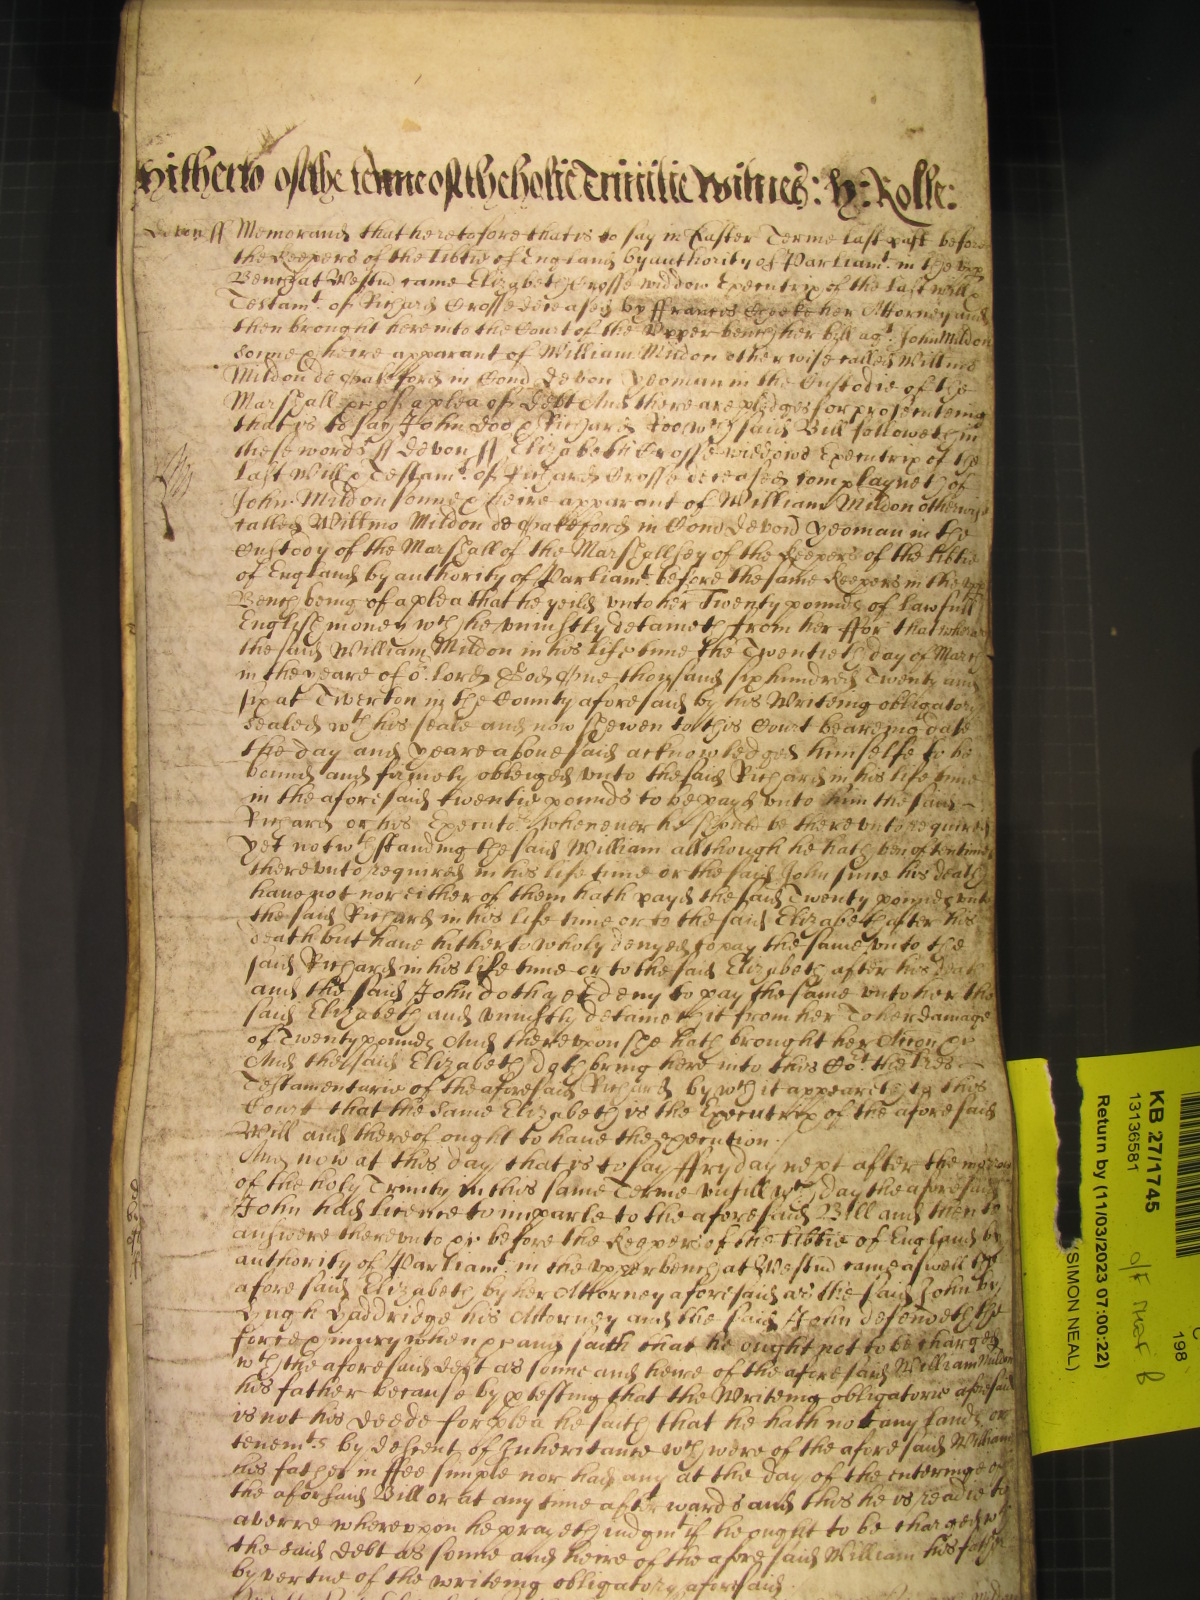 Hitherto of the terme of the holie Trinitie Witnes: H: Rolle:
Devon ss Memorand that heretofore that is to say in Easter Terme last past before
the Keepers of the libtie of England by authority of Parliamt. in the upp
Bench at Westm came Elizabeth Crosse widdow Executrix of the last will &
Testamt. of Richard Crosse deceased by ffrancis her Attorney and
then brought here into the Court of the Upper bench her bill agt. John Mildon
sonne & heire apparant of William Mildon otherwise called Willmo
Mildon de Hakeford in Com Devon yeoman in the Custodie of the
Marshall &c of a plea of debt And there are pledges for prosecuteing
that is to say John Doo & Richard Roo wch said Bill followeth in
these words ss Devon ss Elizabeth Crosse widdow Executrix of the
last Will & Testamt. of Richard Crosse deceased complayneth of
John Mildon sonne & heire apparant of William Mildon otherwise
called Willmo Mildon de Hakeford in Com Devon yeoman in the
Custody of the Marshall of the Marshallsey of the Keepers of the libtie
of England by authority of Parliamt. before the same Keepers in the upp
Bench being of a plea that he yeild unto her Twenty pounds of lawfull
English money wch he uniustly detaineth from her ffor that whereas
the said William Mildon in his life time the Twentieth day of March
in the yeare of or. lord God One thousand six hundred Twenty and
six at Tiverton in the County aforesaid by his Writeing obligatory
sealed wth his seale and now shewen to this Court beareing date
the day and yeare abovesaid acknowledged himselfe to be
bound and firmely obleiged unto the said Richard in his life time
in the aforesaid twentie pounds to be payd unto him the said
Richard or his Executors whenever he should be thereunto required
Yet notwthstanding the said William allthough he hath ben oftentimes
thereunto required in his life time or the said John since his death
have not nor either of them hath payd the said Twenty pounds unto
the said Richard in his life time or to the said Elizabeth after his
death but have hitherto wholy denyed to pay the same unto the
said Richard in his life time or to the said Elizabeth after his death
and the said John doth yet deny to pay the same unto her the
said Elizabeth and uniustly detaineth it from her To her damage
of Twenty pounds And thereupon she hath brought her Accon &c
And the said Elizabeth doth bring here into this Cot. the lres
Testamentarie of the aforesaid Richard by wch it appeareth to this
Court that the same Elizabeth is the Executrix of the aforesaid
Will and thereof ought to have the execution.
And now at this day that is to say ffryday next after the morrow
of the holy Trinity in this same Terme untill wch day the aforesaid
John had licence to imparle to the aforesaid Bill and then to
answere thereunto &c before the Keepers of the libtie of England by
authority of Parliamt. in the upper bench at Westm came aswell the
aforesaid Elizabeth by her Attorney aforesaid as the said John by
Hugh his Attorney and the said John defendeth the
force & iniury when &c and saith that he ought not to be charged
wth the aforesaid debt as sonne and heire of the aforesaid William Mildon
his father because by ptesting that the Writeing obligatorie aforesaid
is not his deede for plea he saith that he hath not any lands or
tenemts. by descent of Inheritance wch were of the aforesaid William
his father in ffee simple nor had any at the day of the entering of
the aforsaid Bill or at any time afterwards and this he is readie to
averre whereupon he prayeth iudgmt if he ought to be charged wth
the said debt as sonne and heire of the aforesaid William his father
by vertue of the writeing obligatory aforesaid
KB 27/1745
13136581
Return by (11/03/2023 07:00:22)
(SIMON NEAL)
198